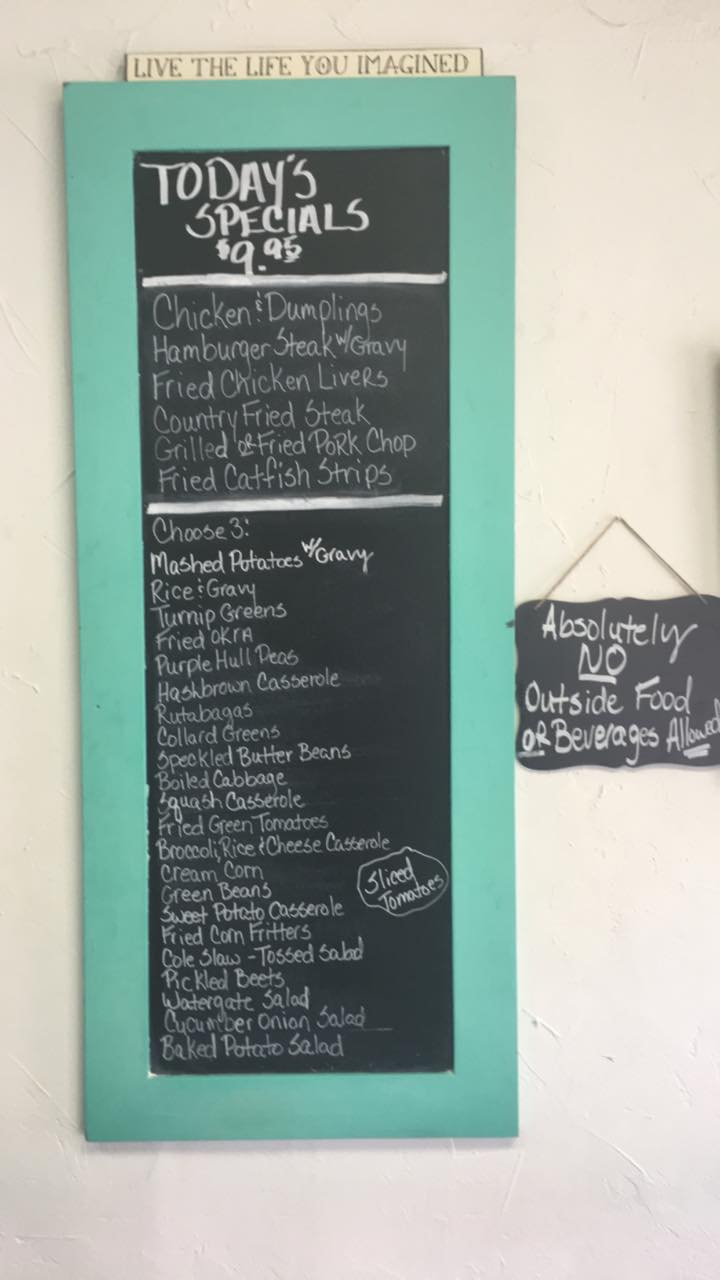 LIVE THE LIFE YOU IMAGINED
TODAY'S
SPECIALS
$9.95
Chicken & Dumplings
Hamburger Steak w/Gravy
Fried Chicken Livers
Country Fried Steak
Grilled or Fried Pork Chop
Fried Catfish Strips
Choose 3:
Mashed Potatoes w/Gravy
Rice & Gravy
Turnip Greens
Fried OKRA
Purple Hull Peas
Hashbrown Casserole
Rutabagas
Collard Greens
Speckled Butter Beans
Boiled Cabbage
Squash Casserole
Fried Green Tomatoes
Broccoli, Rice & Cheese Casserole
Cream Corn
Green Beans
Sweet Potato Casserole
Fried Corn Fritters
Cole Slaw - Tossed Salad
Pickled Beets
Watergate Salad
Cucumber Onion Salad
Baked Potato Salad
Sliced
Tomatoes
Absolutely
NO
Outside Food
OR Beverages Allowed